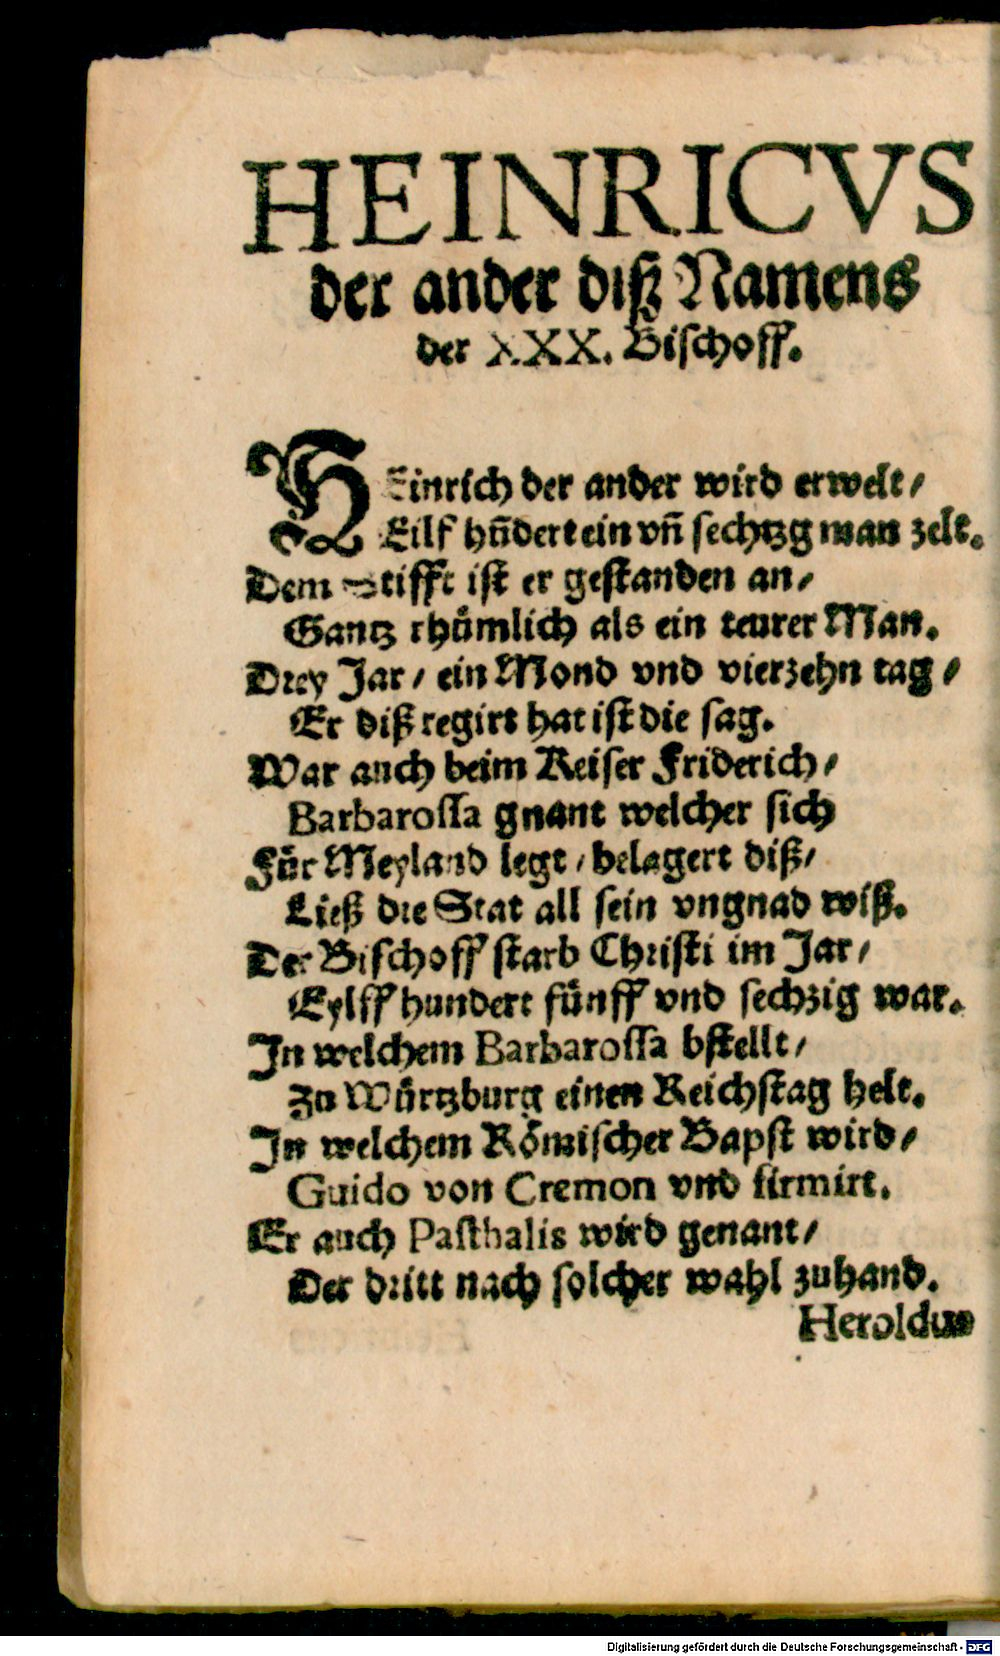 HEINRICVS
der ander diß Namens
der XXX. Bischoff.
HEinrich der ander wird erwelt /
Eilf hūdert ein vñ sechtzg man zelt.
Dem Stifft ist er gestanden an /
Gantz rhümlich als ein teurer Man.
Drey Jar / ein Mond vnd vierzehn tag /
Er diß regirt hat ist die sag.
War auch beim Keiser Friderich /
Barbarossa gnant welcher sich
Für Meyland legt / belagert diß /
Ließ die Stat all sein vngnad wiß.
Der Bischoff starb Christi im Jar /
Eylff hundert fünff vnd sechzig war.
In welchem Barbarossa bstellt /
Zu Würtzburg einen Reichstag helt.
In welchem Römischer Bapst wird /
Guido von Cremon vnd firmirt.
Er auch Pasthalis wird genant /
Der dritt nach solcher wahl zuhand.
Heroldus
Digitalisierung gefördert durch die Deutsche Forschungsgemeinschaft - DFG